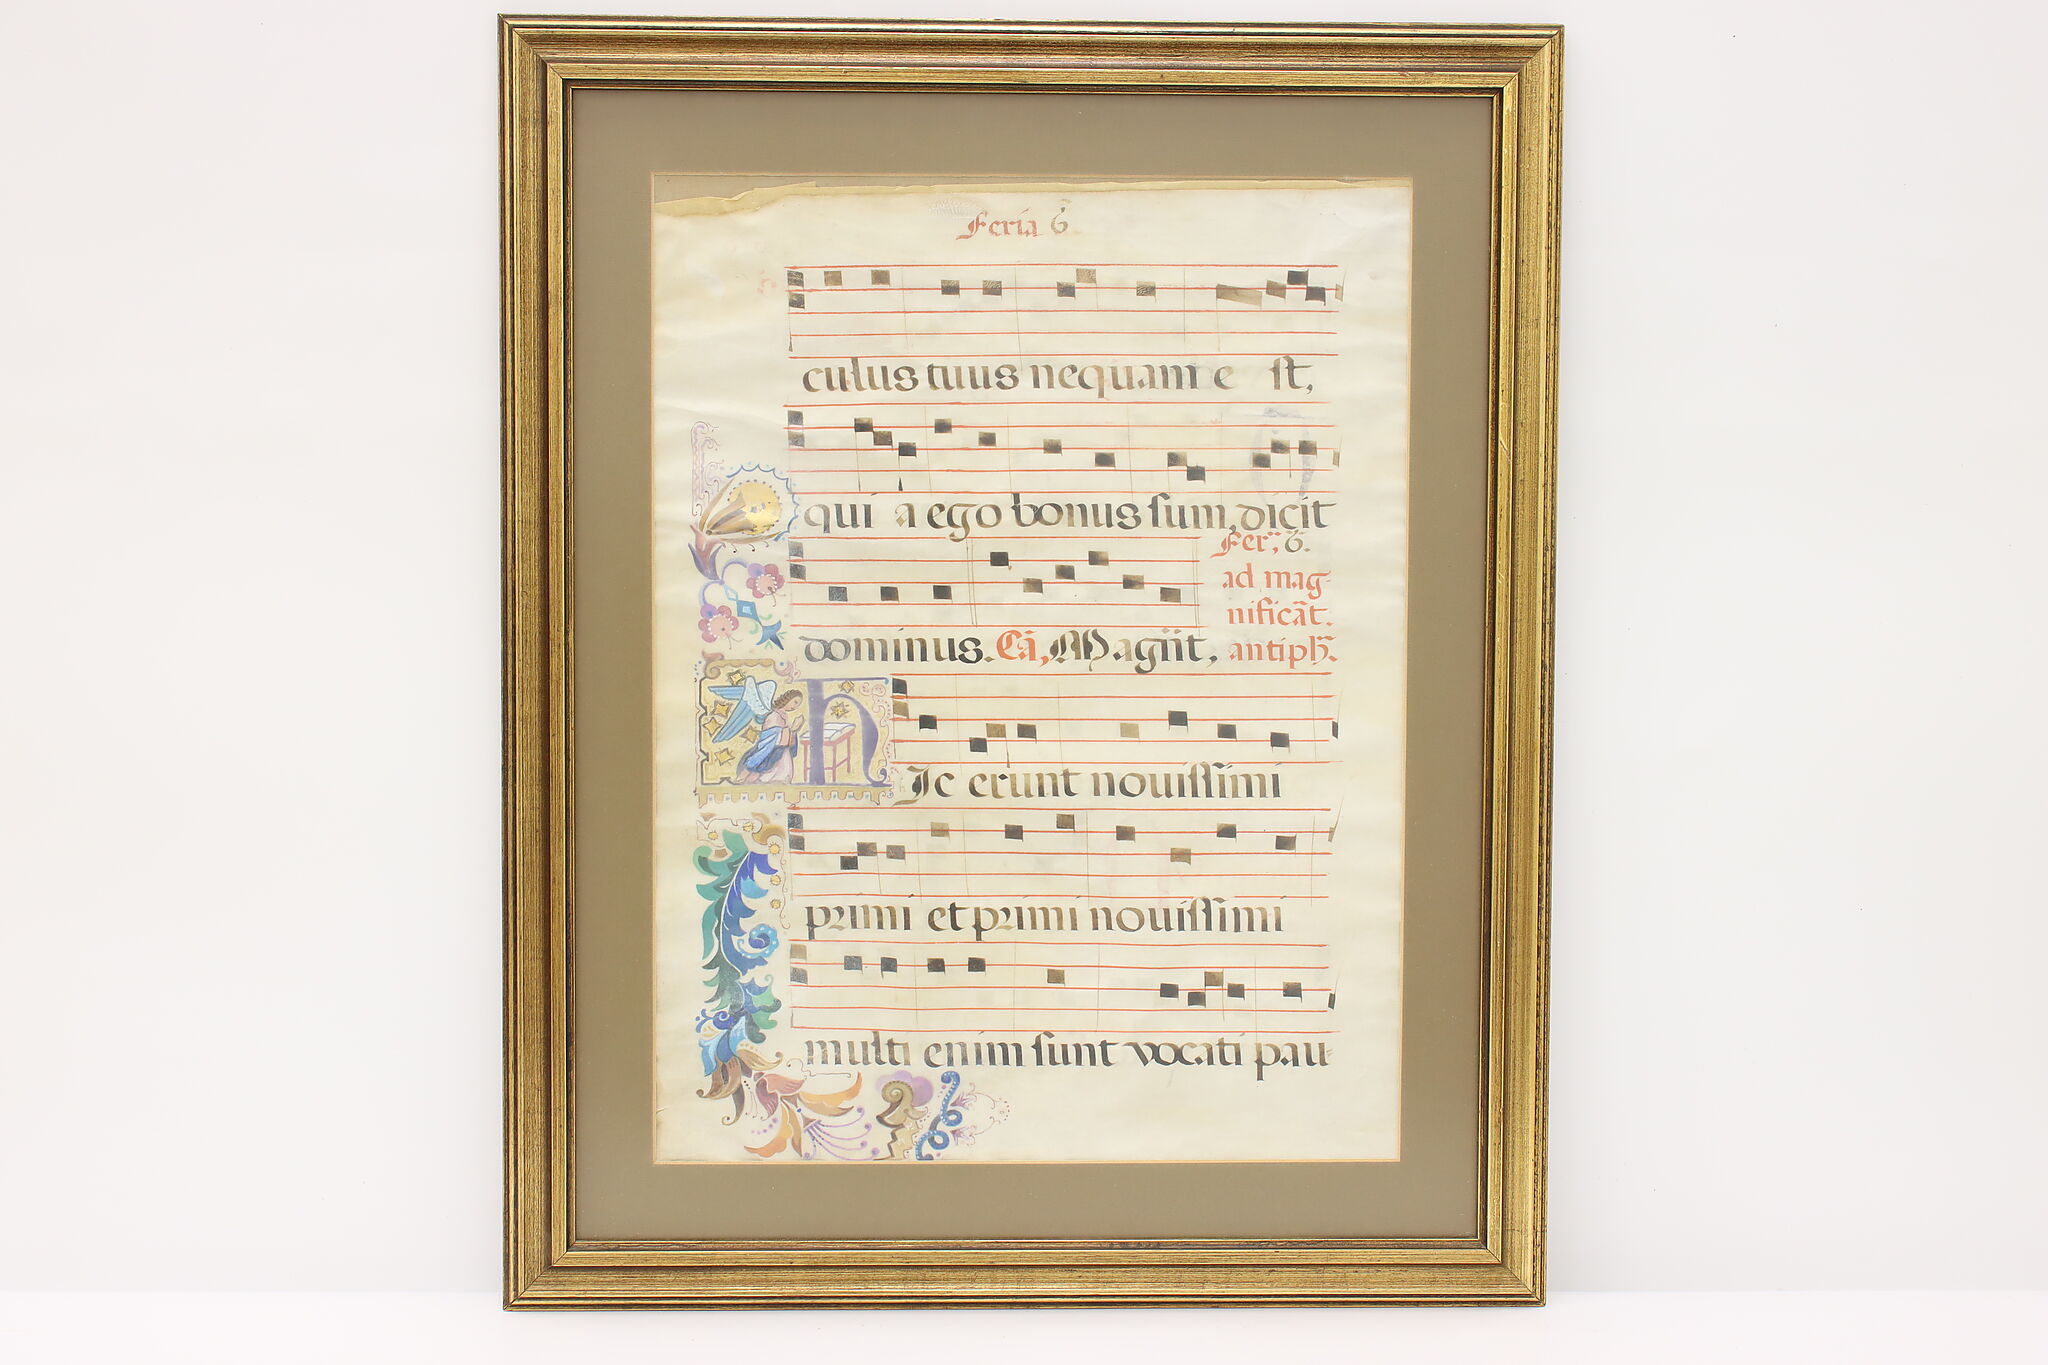 Feria 6
culus tuus nequam e st,
qui a ego bonus sum, dicit
Fer. 6.
ad mag-
nificãt.
dominus. Cã, Magñt, antiph.
Ic erunt nouissimi
primi et primi nouissimi
multi enim sunt vocati pau-